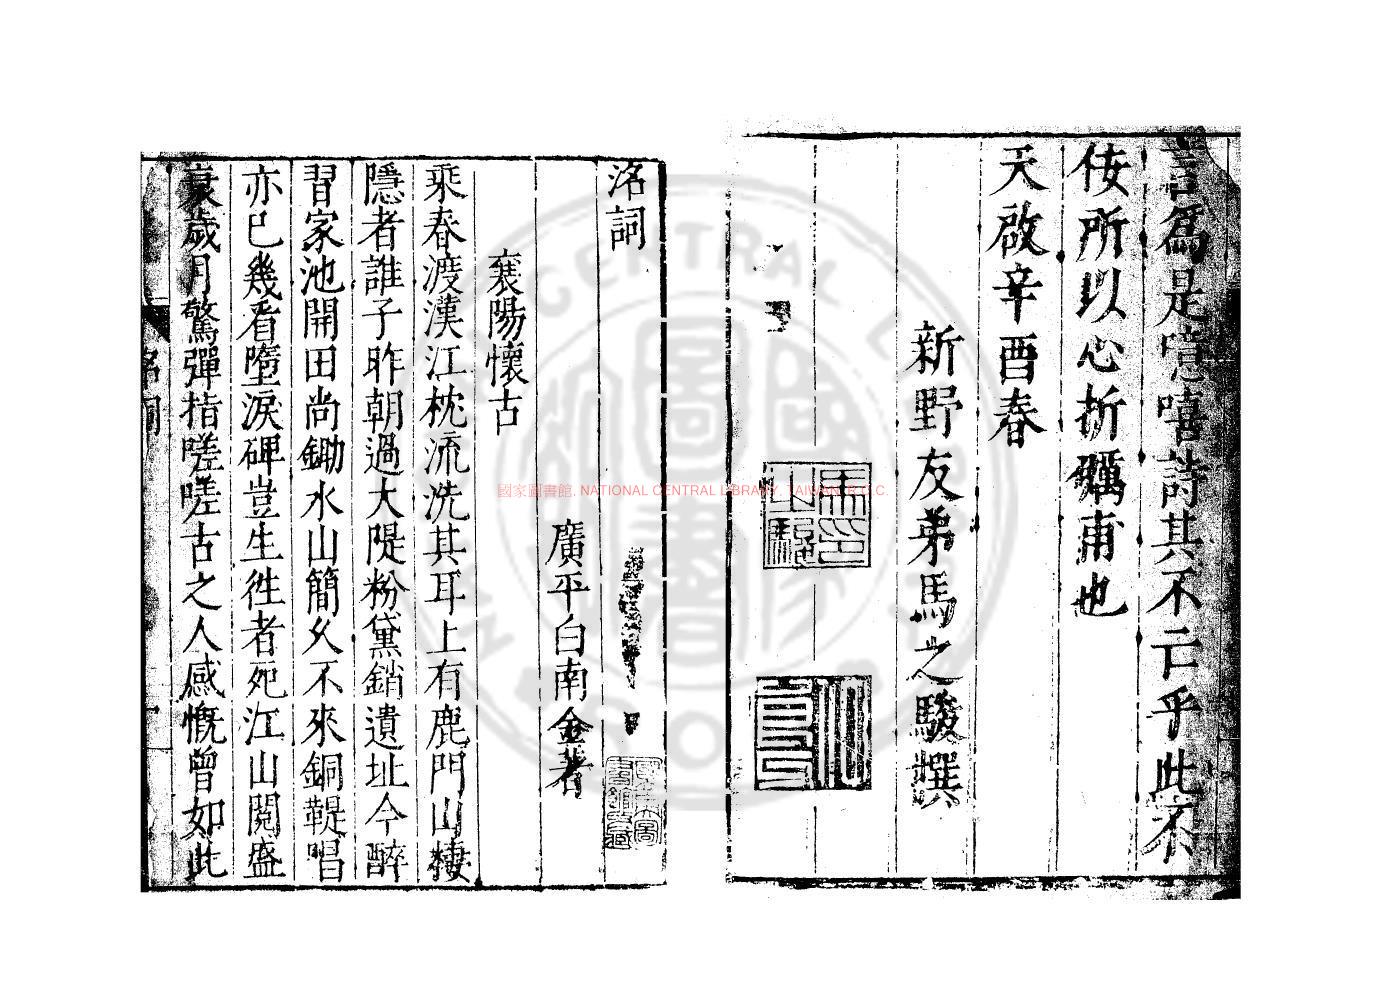 言爲是噫嘻詩其不亡乎此不
佞所以心折礪甫也
天啟辛酉春
新野友弟馬之駿撰
洛詞
廣平白南金著
襄陽懷古
乘春渡漢江枕流洗其耳上有鹿門山棲
隱者誰子昨朝過大隄粉黛銷遺址今醉
習家池開田尚鋤水山簡久不來銅鞮唱
亦已幾看墮淚碑豈生徃者死江山閱盛
衰歲月驚彈指嗟嗟古之人感慨曾如此
洛詞
國家圖書館, NATIONAL CENTRAL LIBRARY, TAIWAN, R.O.C.